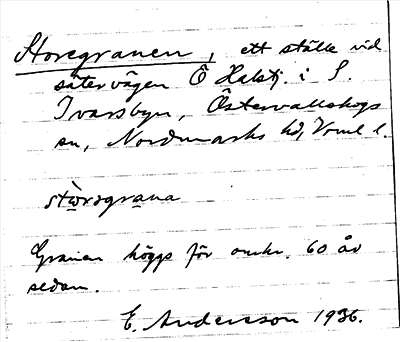 Storegranen, ett ställe vid
sätervägen Ö Halstj. i S.
Ivarsbyn, Östervallskogs
sn, Nordmarks hd, Vrml l.
stωrəgrana
Granen höggs för omkr. 60 år
sedan.
E. Andersson 1936.